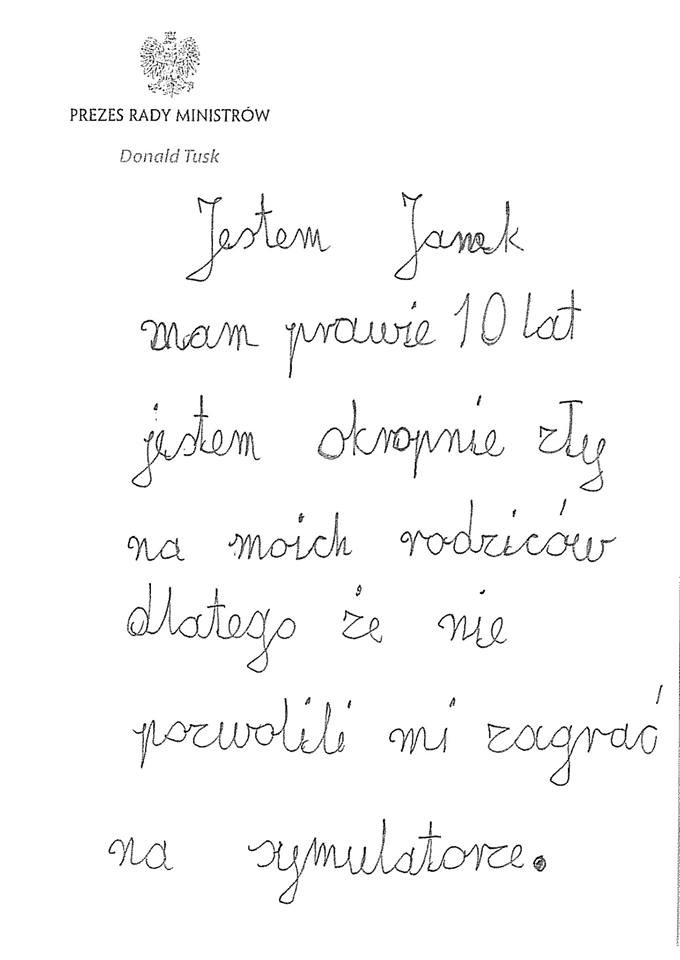 PREZES RADY MINISTRÓW
Donald Tusk
Jestem Janek
mam prawie 10 lat
jestem okropnie zły
na moich rodziców
dlatego że nie
pozwolili mi zagrać
na symulatorze.